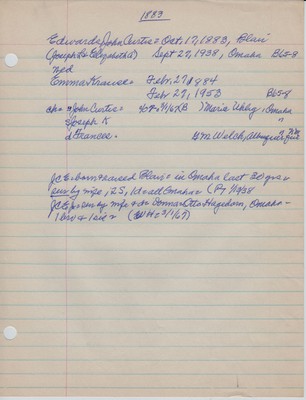 1883
Edwards, John Curtis = Oct. 17, 1883, Blair
(Joseph K + Elizabeth) Sept 27, 1938, Omaha B65-8
md
Emma Krause = Febr. 27, 1884
Feb 27, 1953 B65-8
ch = John Curtis = Marie Uhlig, Omaha
Joseph K "
d Frances = Wm Welch, Albuquerque, N M
JCE = born + raised Blair = in Omaha last 30 yrs
surv by wife, 2S, 1d = all Omaha =
JCE Jr = surv by wife + d = Donna Otto Hagedorn, Omaha -
1 bro + 1 sis = (WH = 3/1/67)